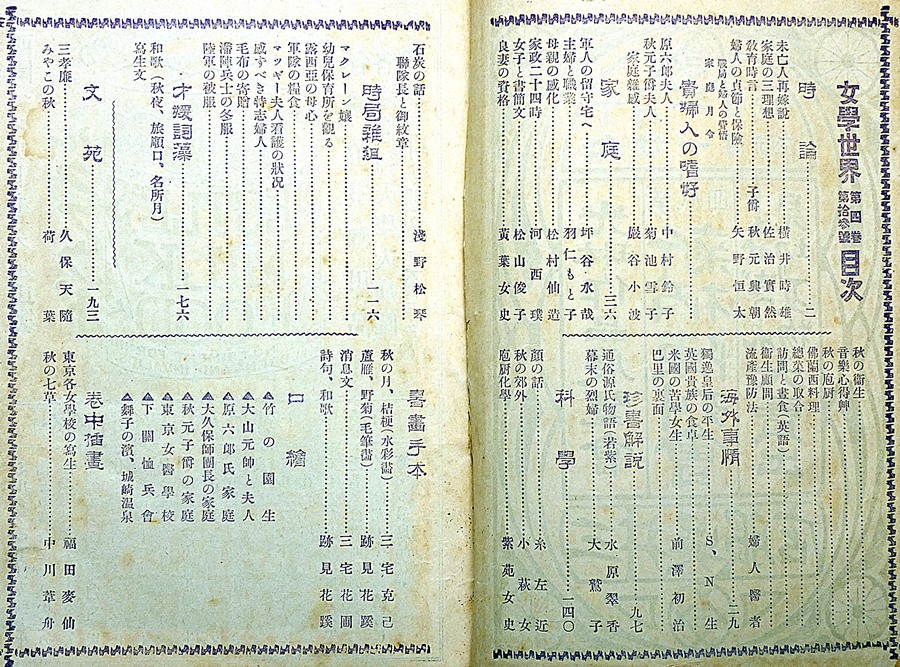 女學世界 第四巻第拾參號 目次
時論……二
未亡人再嫁說……橫井時雄
家庭の三理想……佐治實然
敎育時言……子爵 秋元興朝
婦人の貞節と保險……矢野恒太
戰局と婦人の覺悟
家庭月令
貴婦人の嗜好
原六郎夫人……中村鈴子
秋元子爵夫人……菊池雪子
家庭雜感……嚴谷小波
家庭……三六
軍人の留守宅……坪谷水哉
主婦と職業……羽仁もと子
母親の感化……松村仙造
家政二十四時……河西璞
女子と書簡文……松山俊子
良妻の資格……黃葉女史
秋の衞生
音樂心得艸
秋の庖厨
佛蘭西料理
總菜の取合
訪問と晝食(英語)
衞生顧問
流產豫防法……婦人醫者
海外事情……二九
獨逸皇后の平生……S、N生
英國貴族の食卓
米國の苦學女生……前澤初治
巴里の裏面
珍書解說……九七
通俗源氏物語(若紫)……水原翠香
幕末の烈婦……大鷲子
科學……一四〇
顏の話……糸左近
秋の郊外……小萩女
庖厨化學……紫苑女史
石炭の話……淺野松琴
聯隊長と御紋章
時局雜組……一一六
マクレーン孃
幼兒保育所を觀る
露西亞の母心
軍隊の糧食
マッギー夫人看護の狀況
感すべき特志婦人
毛布の寄贈
滯陣兵士の冬服
陸軍の被服
才媛詞藻……一七六
和歌(秋夜、旅順口、名所月)
寫生文
文苑……一九三
三孝廉……久保天隨
みやこの秋……荷葉
書畫手本
秋の月、桔梗(水彩畵)……三宅克己
蘆雁、野菊(毛筆畵)……跡見花蹊
消息文……三宅花圃
詩句、和歌……跡見花蹊
口繪
▲竹の園生
▲大山元帥と夫人
▲原六郎氏家庭
▲大久保師團長の家庭
▲秋元子爵の家庭
▲東京女醫學校
▲下關恤兵會
▲舞子の濱、城崎温泉
卷中插畫
東京各女學校の寫生……福田麥仙
秋の七草……中川葦舟